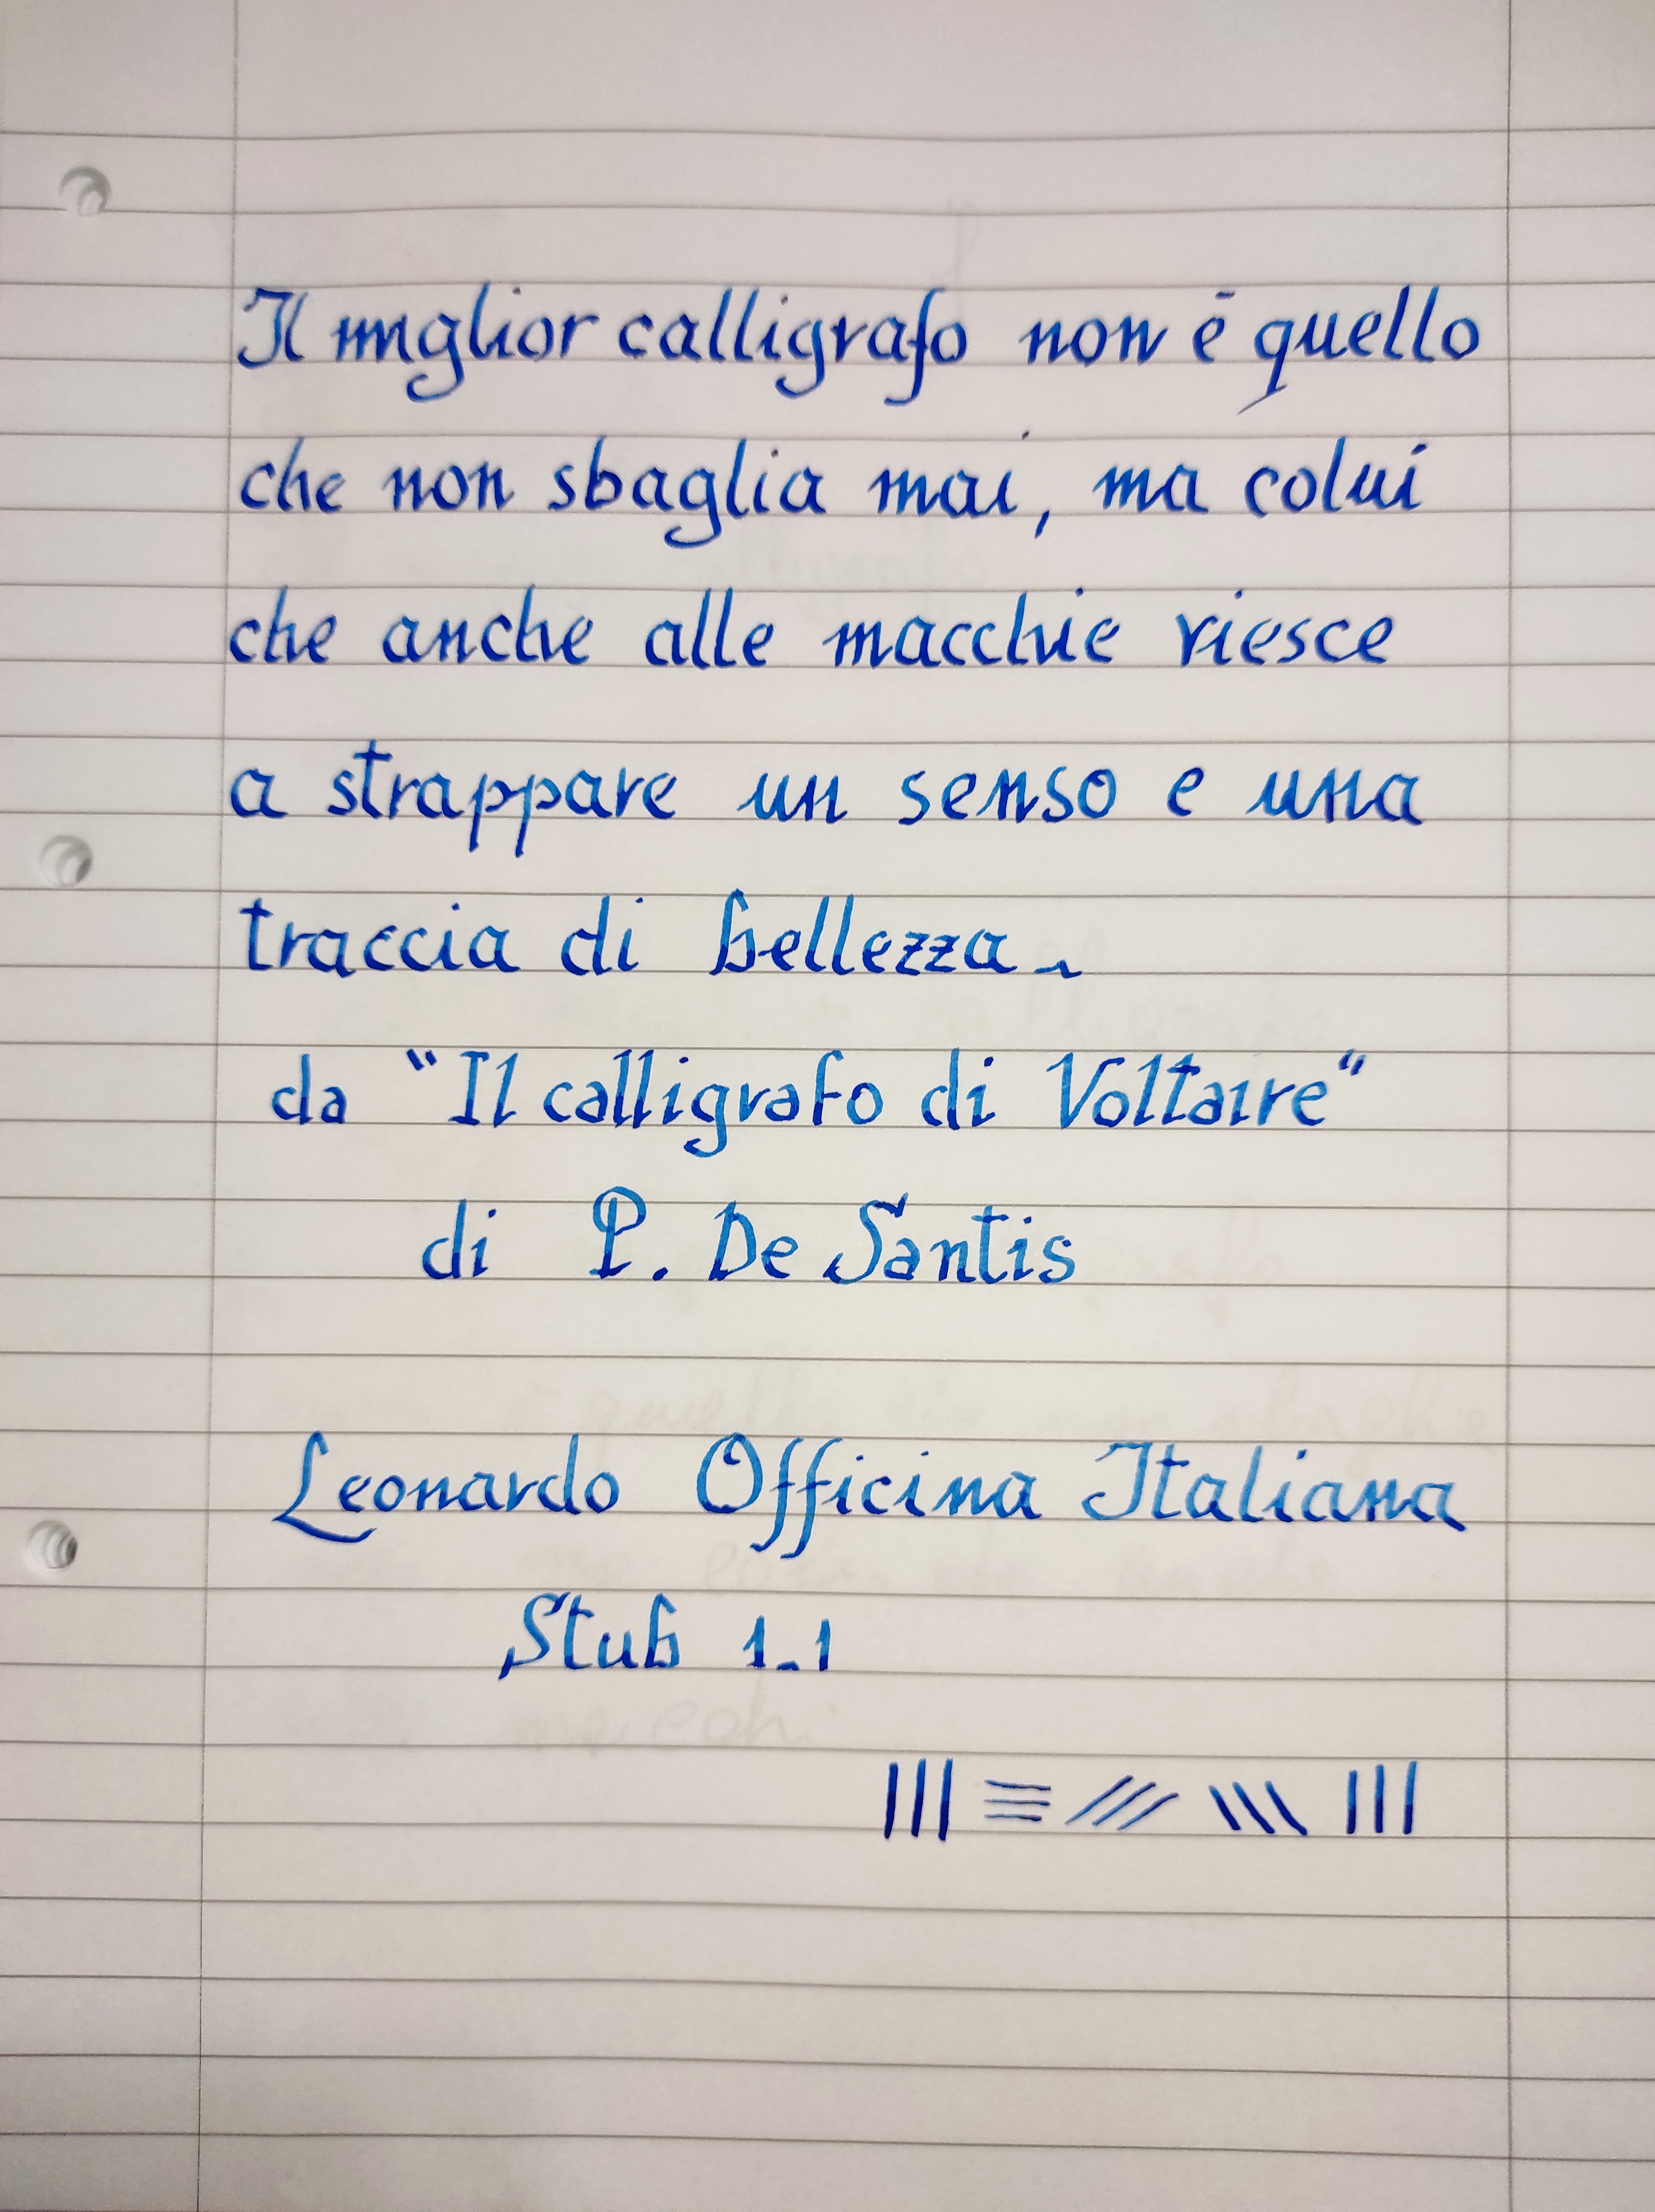 Il miglior calligrafo non è quello
che non sbaglia mai, ma colui
che anche alle macchie riesce
a strappare un senso e una
traccia di bellezza.
da "Il calligrafo di Voltaire"
di P. De Santis
Leonardo Officina Italiana
Stub 1.1